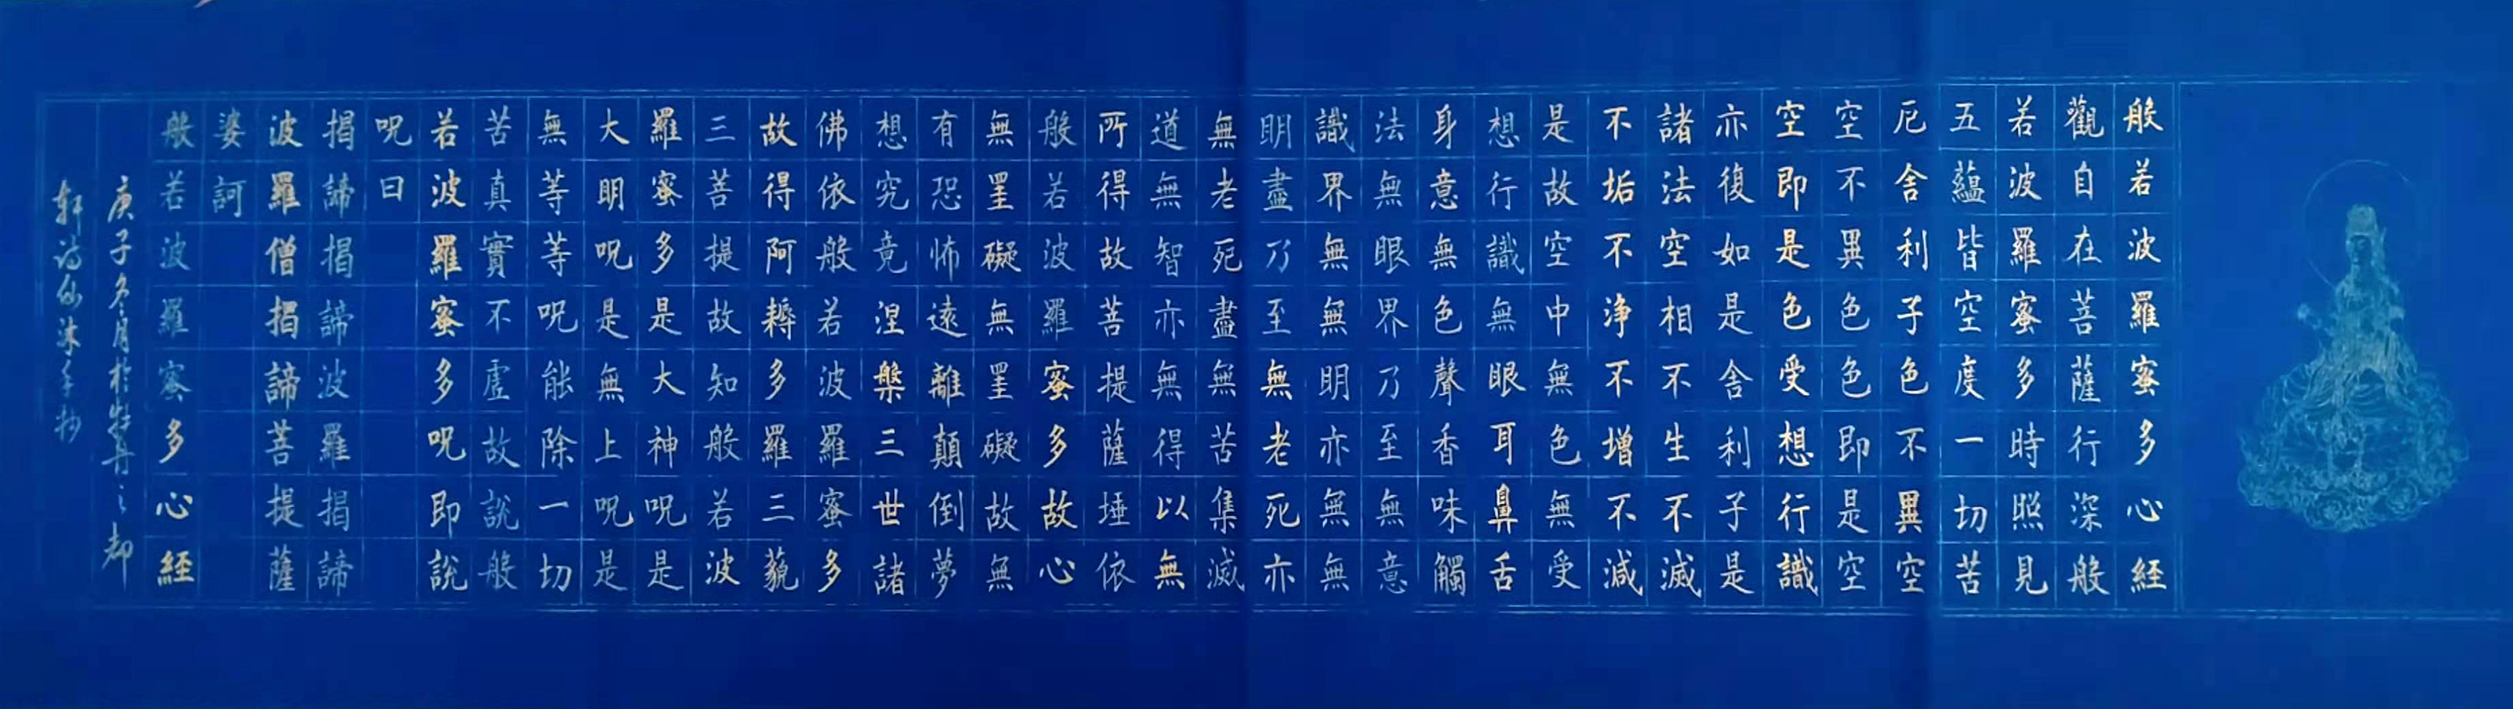 般若波羅蜜多心經
觀自在菩薩行深般
若波羅蜜多時照見
五蘊皆空度一切苦
厄舍利子色不異空
空不異色色即是空
空即是色受想行識
亦復如是舍利子是
諸法空相不生不滅
不垢不淨不增不減
是故空中無色無受
想行識無眼耳鼻舌
身意無色聲香味觸
法無眼界乃至無意
識界無無明亦無無
明盡乃至無老死亦
無老死盡無苦集滅
道無智亦無得以無
所得故菩提薩埵依
般若波羅蜜多故心
無罣礙無罣礙故無
有恐怖遠離顛倒夢
想究竟涅槃三世諸
佛依般若波羅蜜多
故得阿耨多羅三藐
三菩提故知般若波
羅蜜多是大神呪是
大明呪是無上呪是
無等等呪能除一切
苦真實不虛故說般
若波羅蜜多呪即說
呪曰
揭諦揭諦波羅揭諦
波羅僧揭諦菩提薩
婆訶
般若波羅蜜多心經
庚子冬月於牡丹之都
軒詩仙沐手抄